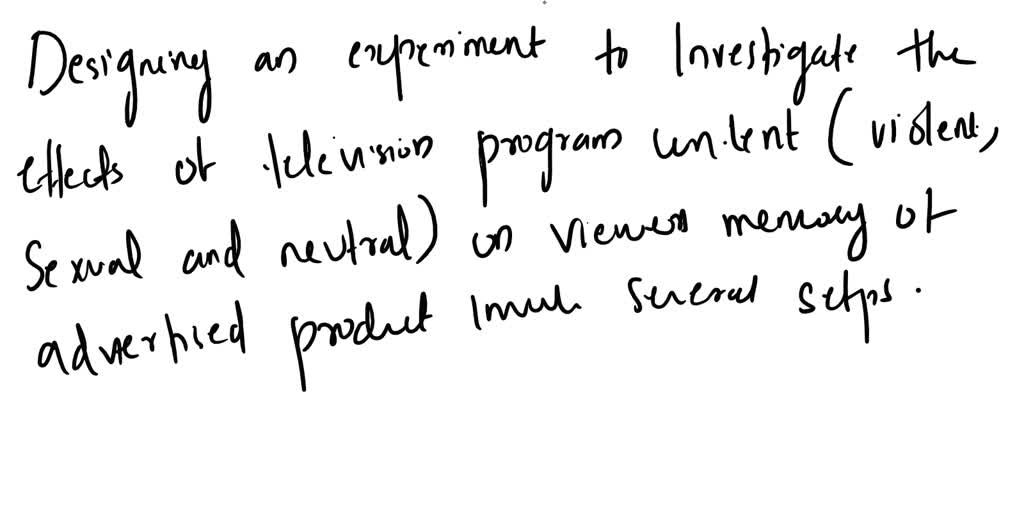 Designing an experiment to Investigate the
effects of television program content (violent,
Sexual and neutral) on viewers memory of
advertised product several setps.